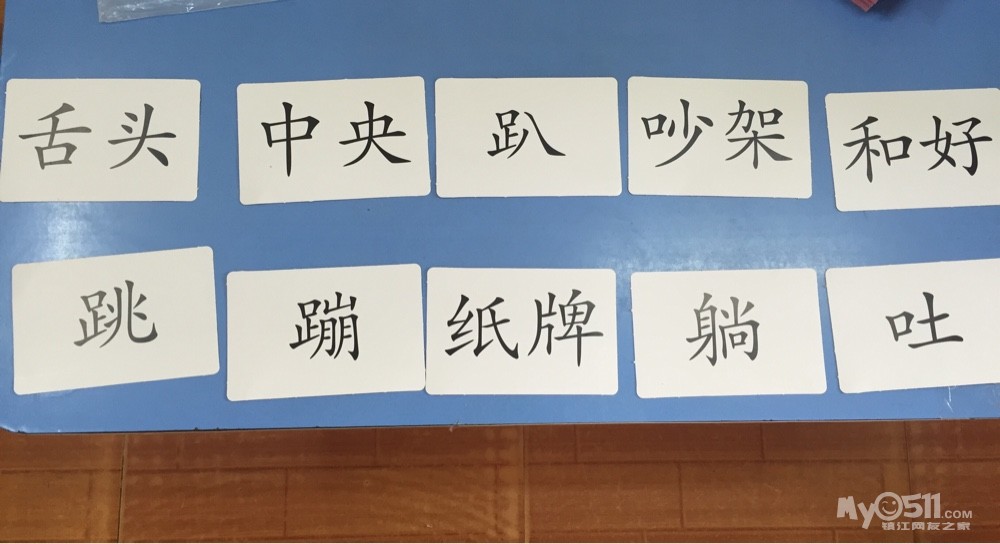 舌头 中央 趴 吵架 和好
跳 蹦 纸牌 躺 吐
My0511.COM
镇江网友之家